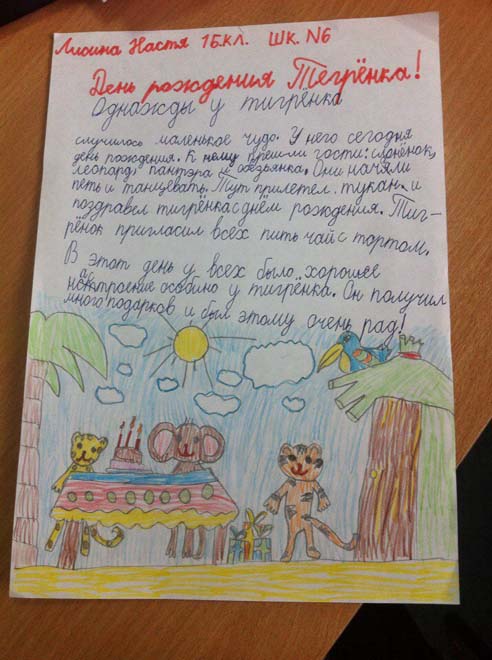 Лисина Настя 1Б.кл. ШК. №6
День рождения Тегрёнка!
Однажды у тигрёнка
случилось маленькое чудо. У него сегодня
день рождения. К нему пришли гости: слонёнок,
леопард, пантэра и обезьянка. Они начяли
петь и танцевать. Тут прилетел тукан и
поздравел тигрёнка с днём рождения. Тиг-
рёнок пригласил всех пить чай с тортом.
В этот день у всех было хорошее
настроение особино у тигрёнка. Он получил
много подарков и был этому очень рад!